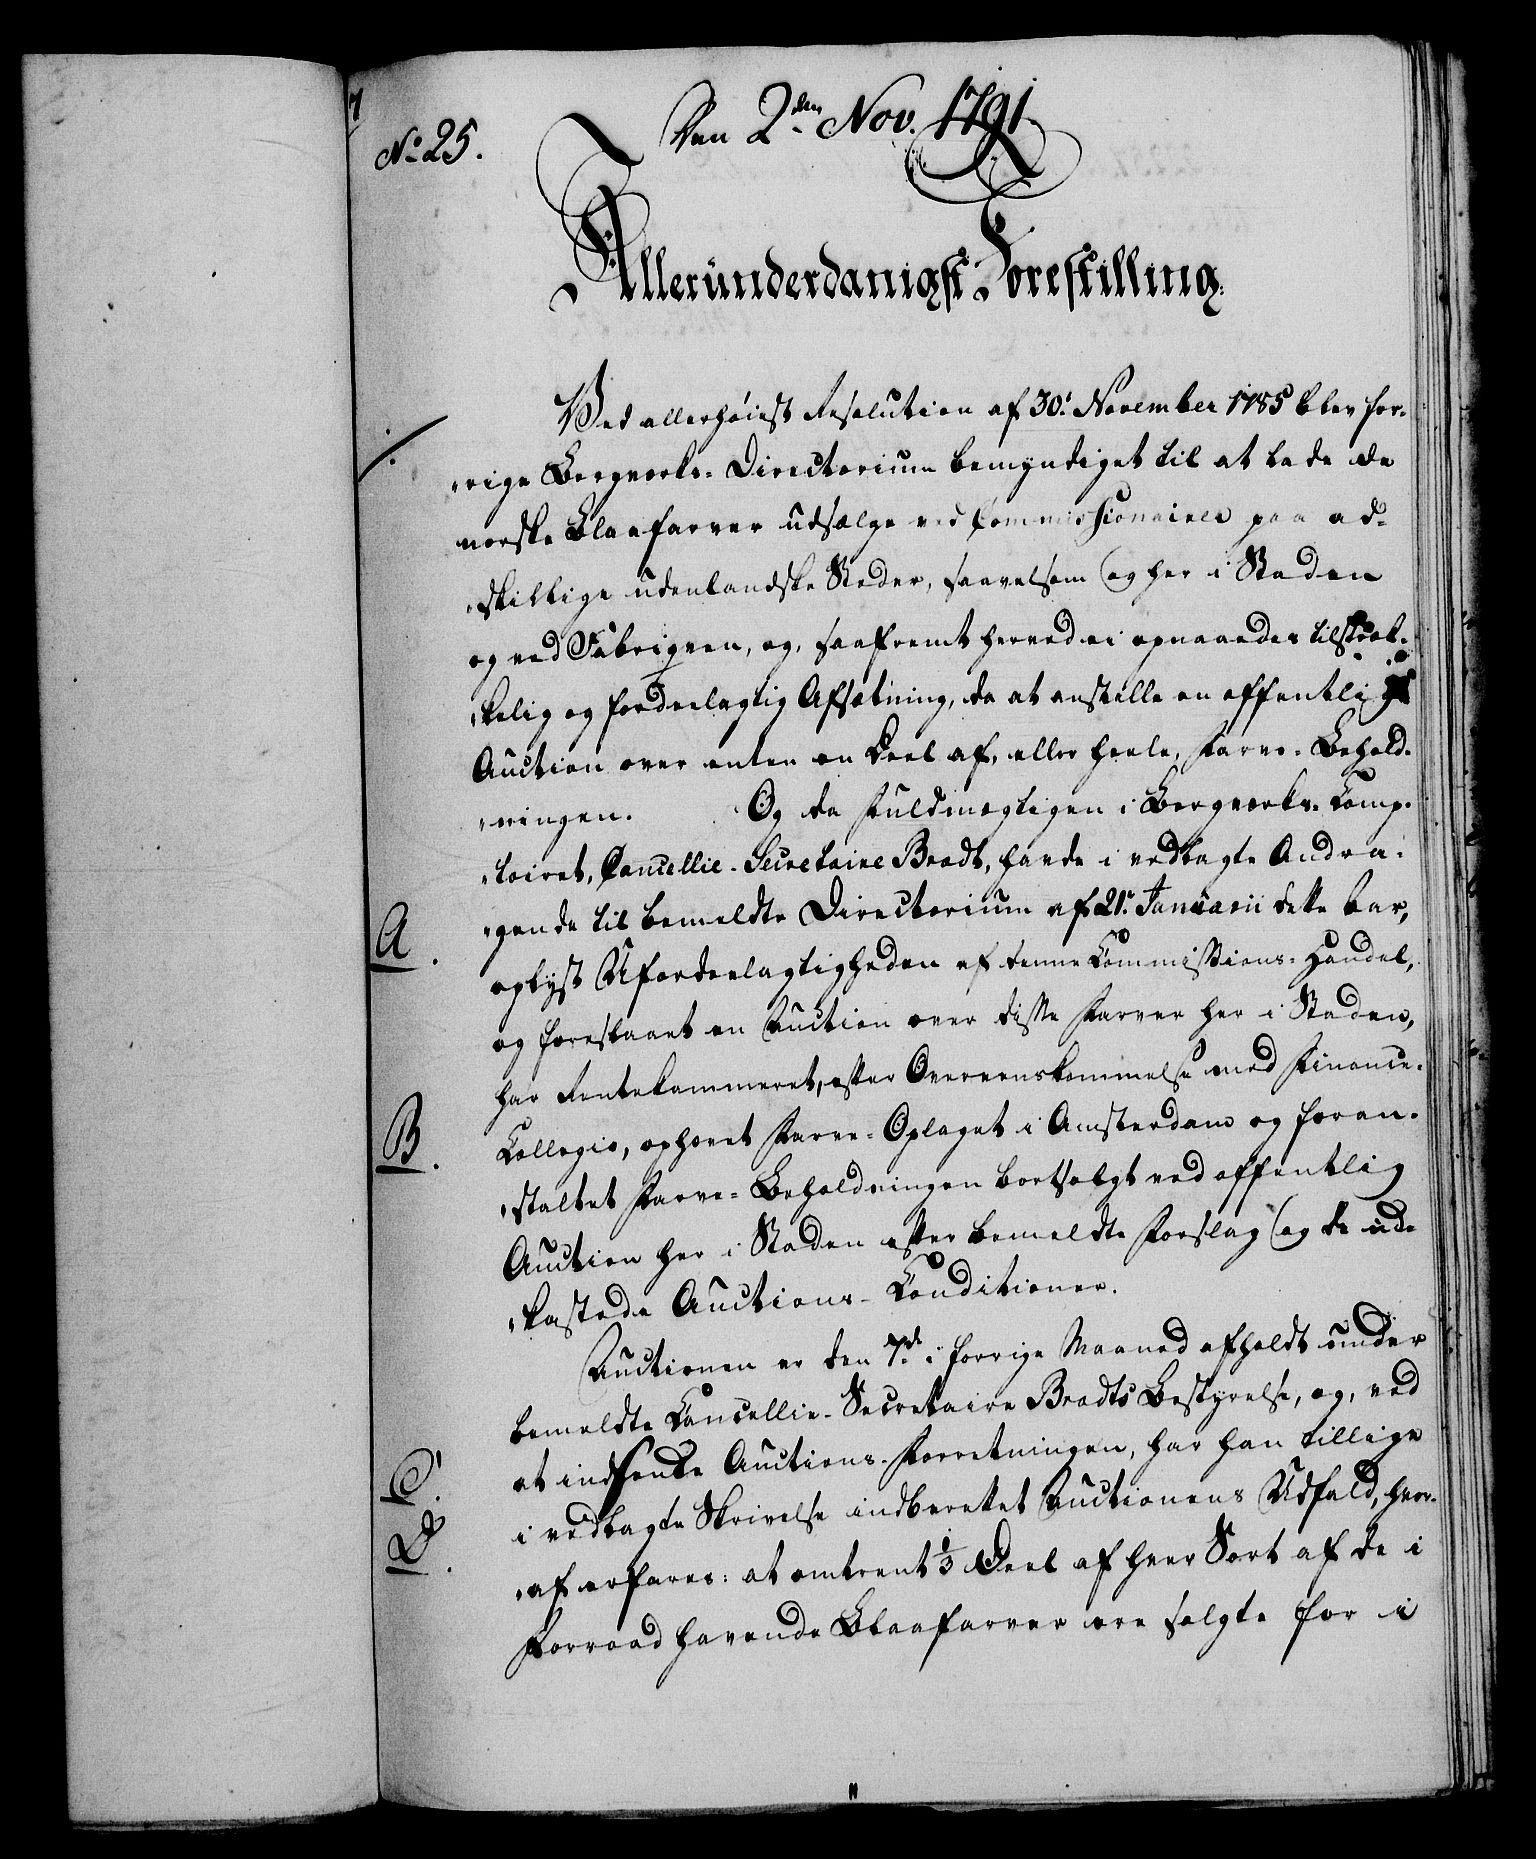 No 25.
Den 2den Nov. 1791.
Alleründerdanigst Forestilling.
Ved allerhøiest Resolution af 30. November 1785 blev for-
rige Bergverks-Directorium bemyndiget til at lade de
norske Blaafarver udsælge ved Commissionairer paa ad-
skillige udenlandske Steder, saavelsom og her i Staden
og ved Fabriqven, og, saafremt herved ei opnaaedes tilstræk-
kelig og fordeelagtig Afsætning, da at anstille en offentlig
Auction over enten en Deel af, eller heele, Farve-Behold-
ningen. Og da Fuldmægtigen i Bergverks-Comp-
toiret, Cancellie-Secretaire Bradt, havde i vedlagte Andra-
A.
gende til bemeldte Directorium af 21. Januarii dette Aar,
oplyst Ufordeelagtigheden af denne Commissions-Handel,
og foreslaaet en Auction over disse Farver her i Staden,
har Rentekammeret, efter Overeenskommelse med Finance-
B.
Collegio, ophævet Farve-Oplaget i Amsterdam og foran-
staltet Farve-Beholdningen bortsolgt ved offentlig
Auction her i Staden efter bemeldte Forslag og de ud-
kastede Auctions-Conditioner.
Auctionen er den 7de i forrige Maaned afholdt under
bemeldte Cancellie-Secretaire Bradts Bestyrelse, og, ved
C.
at indsende Auctions-Forretningen, har han tillige
D.
i vedlagte Skrivelse indberettet Auctionens Udfald, hvor-
af erfares: at omtrent 1/3 Deel af hver Sort af de i
Forraad havende Blaafarver ere solgte for i